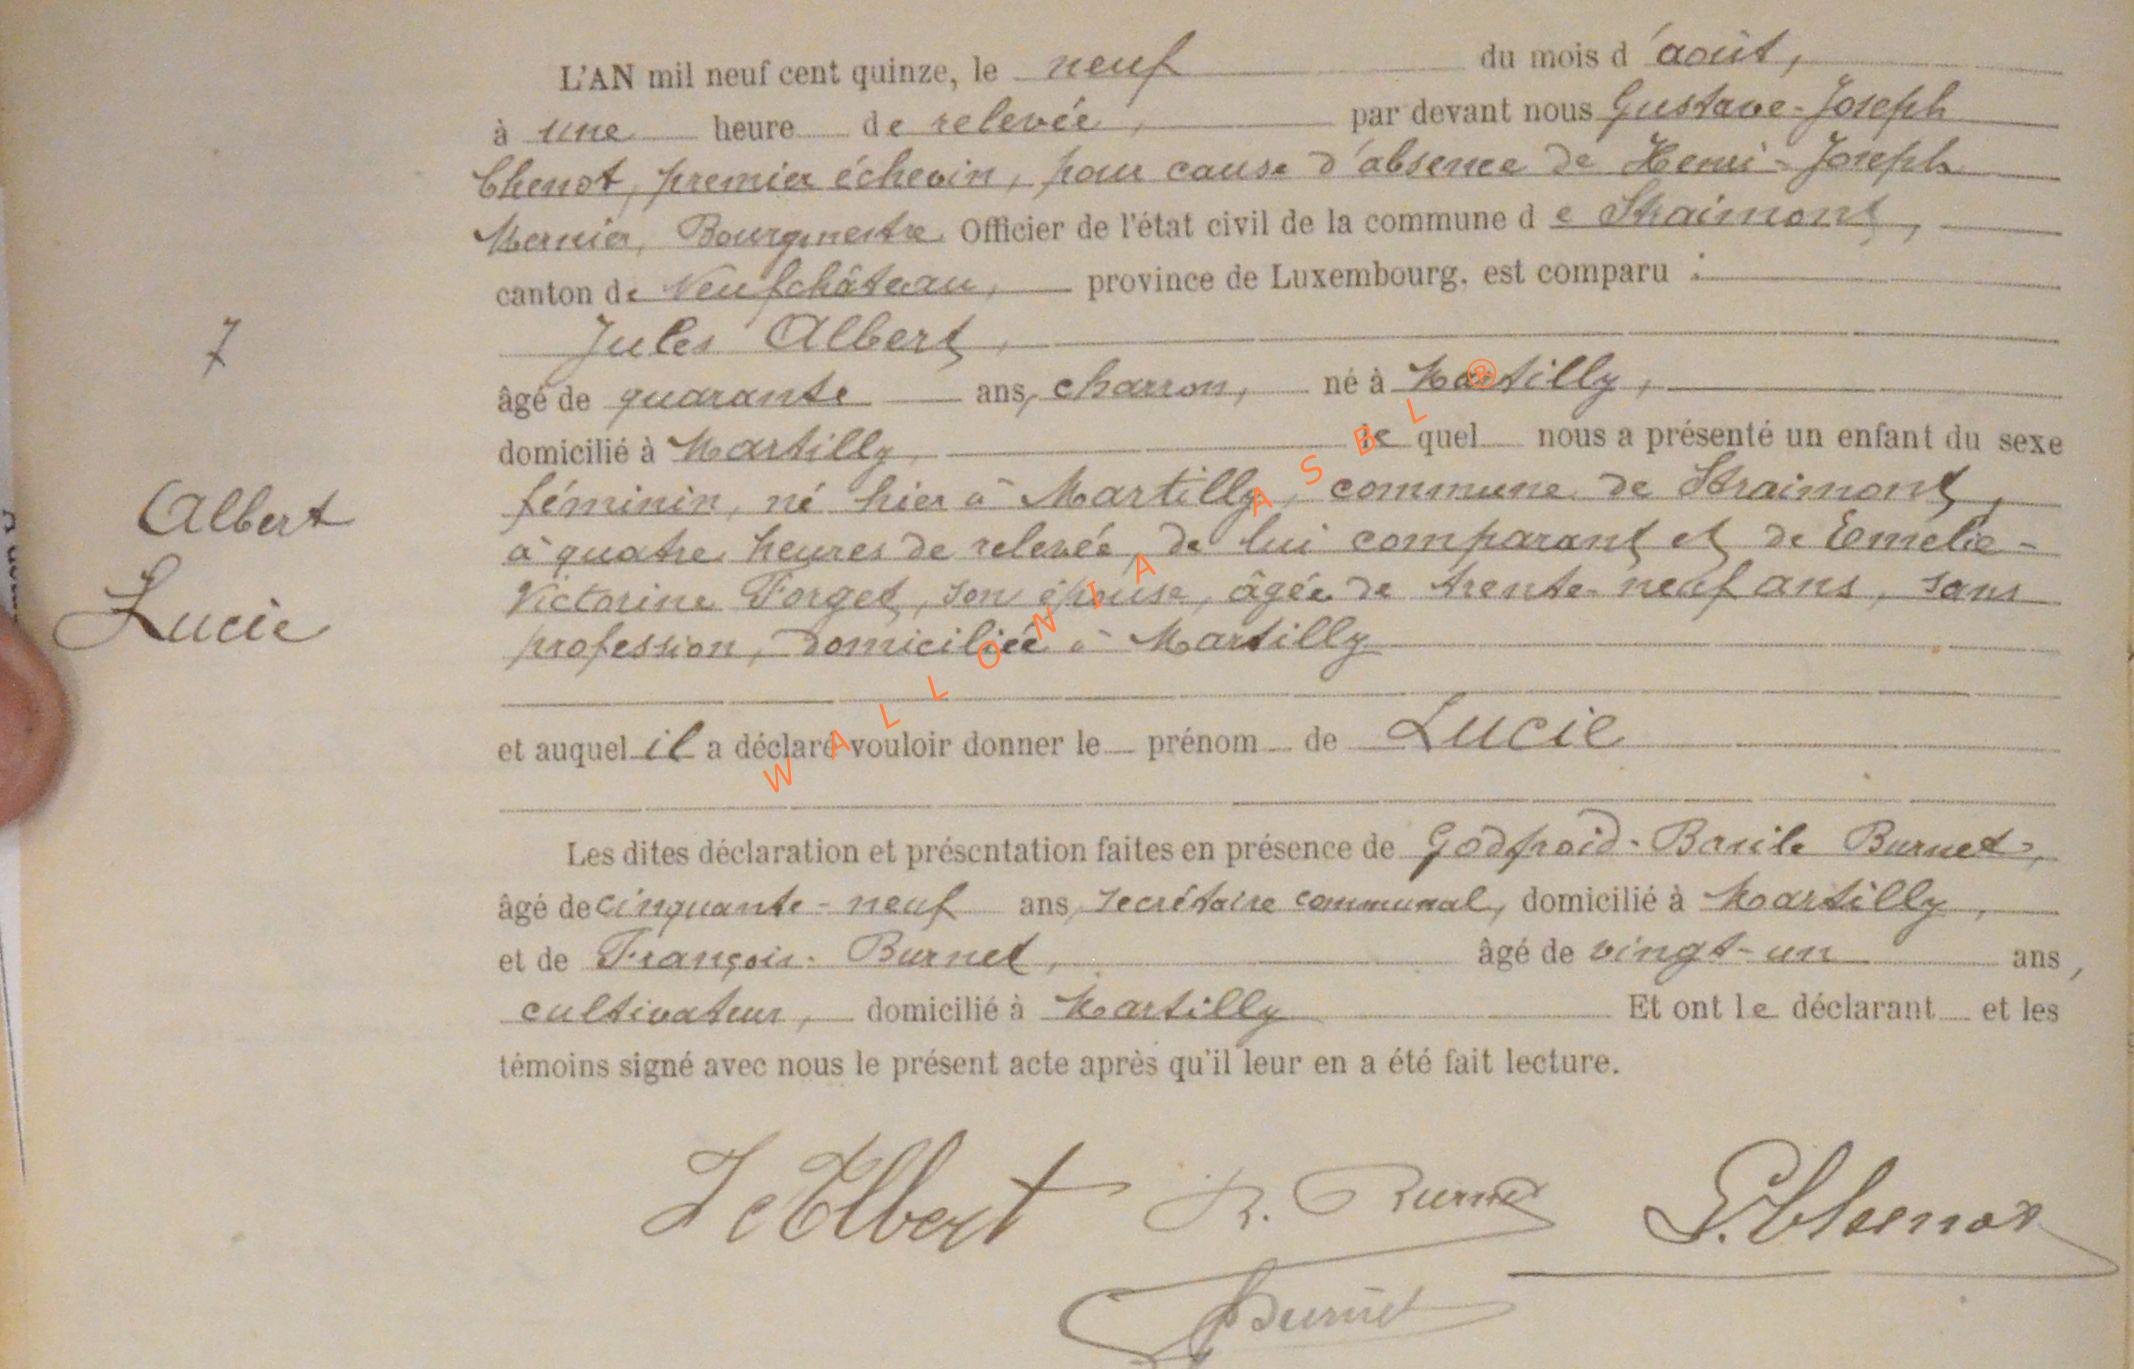 L'AN mil neuf cent quinze, le neuf du mois d'août,
à une heure de relevée, par devant nous Gustave-Joseph
Chenot, premier échevin, pour cause d'absence de Henri-Joseph
Mernier, Bourgmestre Officier de l'état civil de la commune de Straimont,
canton de Neufchâteau, province de Luxembourg, est comparu :
7
Jules Albert,
âgé de quarante ans, charron, né à Martilly,
domicilié à Martilly, le quel nous a présenté un enfant du sexe
Albert
Lucie
féminin, né hier à Martilly, commune de Straimont,
à quatre heures de relevée, de lui comparant et de Emélie-
Victorine Forget, son épouse, âgée de trente-neuf ans, sans
profession, domiciliée à Martilly
et auquel il a déclaré vouloir donner le prénom de Lucie
Les dites déclaration et présentation faites en présence de Godfroid-Basile Burnet,
âgé de cinquante-neuf ans, secrétaire communal, domicilié à Martilly,
et de François Burnet, âgé de vingt-un ans,
cultivateur, domicilié à Martilly Et ont le déclarant et les
témoins signé avec nous le présent acte après qu'il leur en a été fait lecture.
Albert Burnet G. Chenot
Burnet
WALLONIA ASBL ®